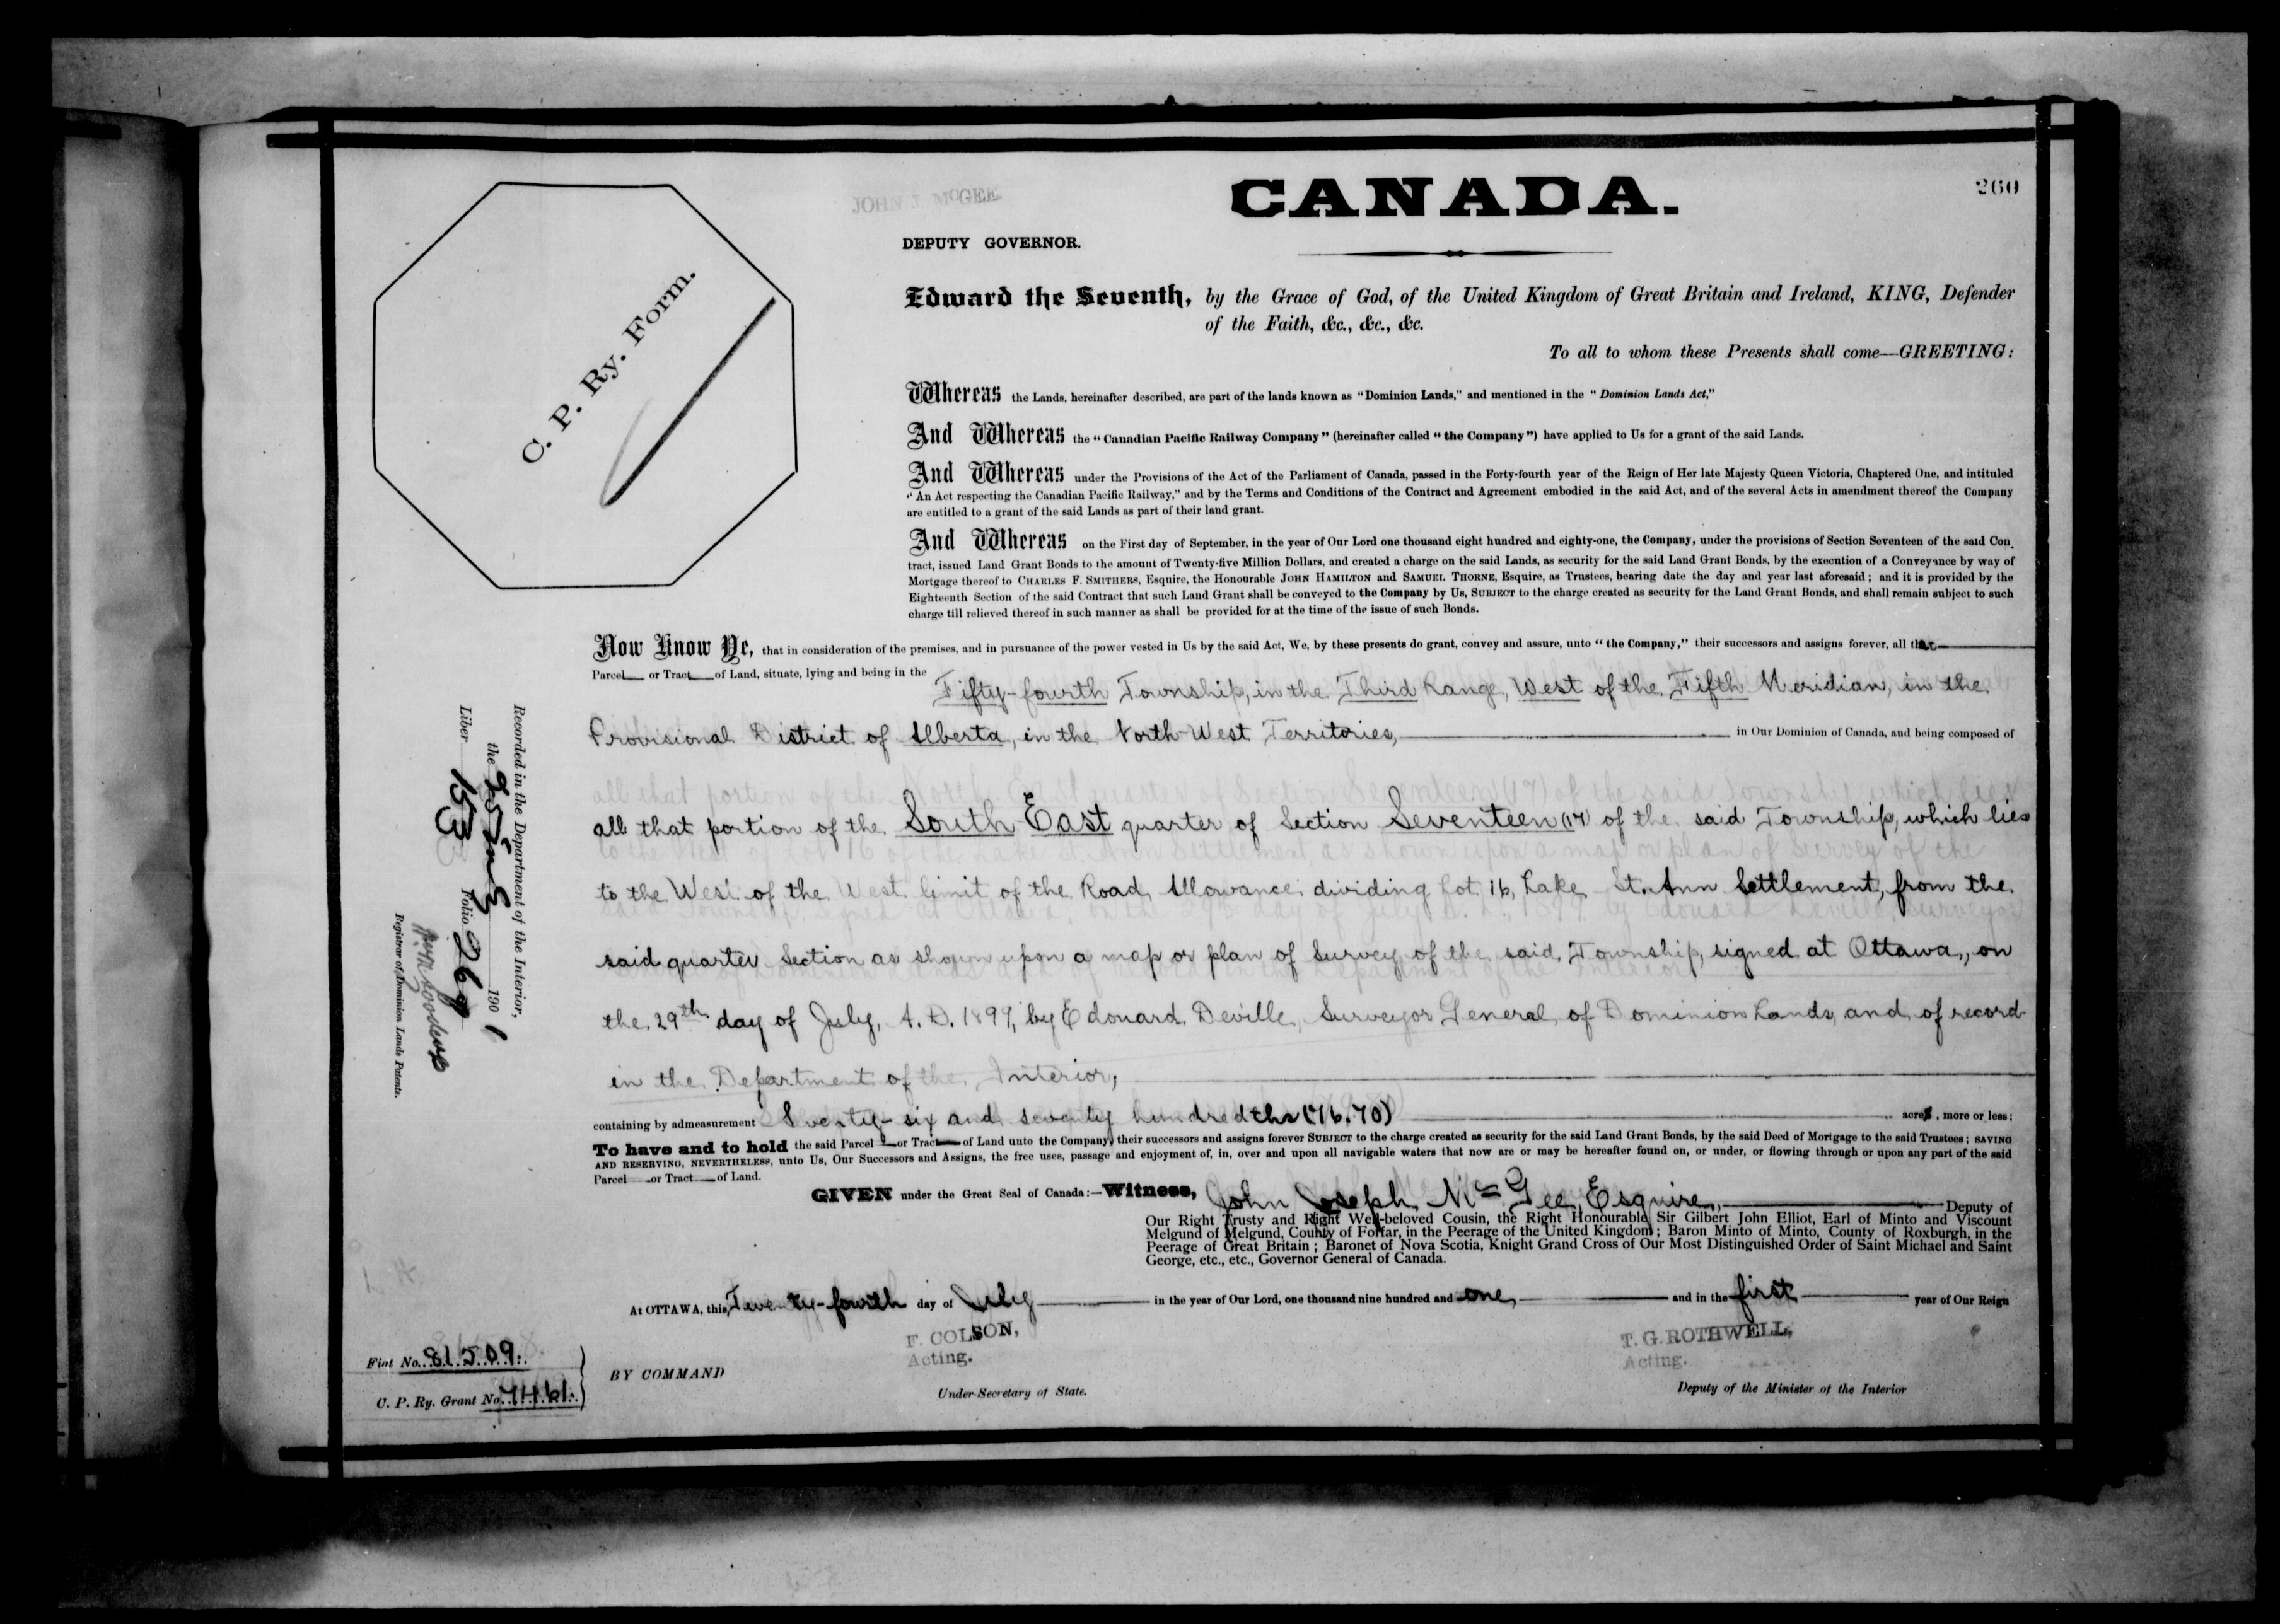 260
JOHN J. McGEE
CANADA.
DEPUTY GOVERNOR.
C. P. Ry. Form.
Edward the Seventh, by the Grace of God, of the United Kingdom of Great Britain and Ireland, KING, Defender
of the Faith, &c., &c., &c.
To all to whom these Presents shall come—GREETING:
Whereas the Lands, hereinafter described, are part of the lands known as "Dominion Lands," and mentioned in the "Dominion Lands Act,"
And Whereas the "Canadian Pacific Railway Company" (hereinafter called "the Company") have applied to Us for a grant of the said Lands.
And Whereas under the Provisions of the Act of the Parliament of Canada, passed in the Forty-fourth year of the Reign of Her late Majesty Queen Victoria, Chaptered One, and intituled
"An Act respecting the Canadian Pacific Railway," and by the Terms and Conditions of the Contract and Agreement embodied in the said Act, and of the several Acts in amendment thereof the Company
are entitled to a grant of the said Lands as part of their land grant.
And Whereas on the First day of September, in the year of Our Lord one thousand eight hundred and eighty-one, the Company, under the provisions of Section Seventeen of the said Con-
tract, issued Land Grant Bonds to the amount of Twenty-five Million Dollars, and created a charge on the said Lands, as security for the said Land Grant Bonds, by the execution of a Conveyance by way of
Mortgage thereof to CHARLES F. SMITHERS, Esquire, the Honourable JOHN HAMILTON and SAMUEL THORNE, Esquire, as Trustees, bearing date the day and year last aforesaid; and it is provided by the
Eighteenth Section of the said Contract that such Land Grant shall be conveyed to the Company by Us, SUBJECT to the charge created as security for the Land Grant Bonds, and shall remain subject to such
charge till relieved thereof in such manner as shall be provided for at the time of the issue of such Bonds.
Now Know Ye, that in consideration of the premises, and in pursuance of the power vested in Us by the said Act, We, by these presents do grant, convey and assure, unto "the Company," their successors and assigns forever, all that
Parcel or Tract of Land, situate, lying and being in the Fifty-fourth Township, in the Third Range, West of the Fifth Meridian, in the
Provisional District of Alberta, in the North-West Territories, in Our Dominion of Canada, and being composed of
all that portion of the South East quarter of Section Seventeen (17) of the said Township, which lies
to the West of the West limit of the Road Allowance dividing Lot 16, Lake St. Ann Settlement, from the
said quarter Section as shown upon a map or plan of Survey of the said Township, signed at Ottawa, on
the 29th day of July, A.D. 1899, by Edouard Deville, Surveyor General of Dominion Lands, and of record
in the Department of the Interior,
containing by admeasurement Seventy-six and seventy hundredths (76.70) acres, more or less;
To have and to hold the said Parcel or Tract of Land unto the Company, their successors and assigns forever SUBJECT to the charge created as security for the said Land Grant Bonds, by the said Deed of Mortgage to the said Trustees; SAVING
AND RESERVING, NEVERTHELESS, unto Us, Our Successors and Assigns, the free uses, passage and enjoyment of, in, over and upon all navigable waters that now are or may be hereafter found on, or under, or flowing through or upon any part of the said
Parcel or Tract of Land.
GIVEN under the Great Seal of Canada:—Witness, John Joseph McGee, Esquire, Deputy of
Our Right Trusty and Right Well-beloved Cousin, the Right Honourable Sir Gilbert John Elliot, Earl of Minto and Viscount
Melgund of Melgund, County of Forfar, in the Peerage of the United Kingdom; Baron Minto of Minto, County of Roxburgh, in the
Peerage of Great Britain; Baronet of Nova Scotia, Knight Grand Cross of Our Most Distinguished Order of Saint Michael and Saint
George, etc., etc., Governor General of Canada.
At OTTAWA, this Twenty-fourth day of July in the year of Our Lord, one thousand nine hundred and one, and in the first year of Our Reign
F. COLSON,
Acting.
T. G. ROTHWELL,
Acting.
BY COMMAND
Under-Secretary of State.
Deputy of the Minister of the Interior
Fiat No. 81509.
C. P. Ry. Grant No. 7461.
Recorded in the Department of the Interior,
the 25 Aug 1901
Liber 153 Folio 260
Registrar of Dominion Lands Patents.